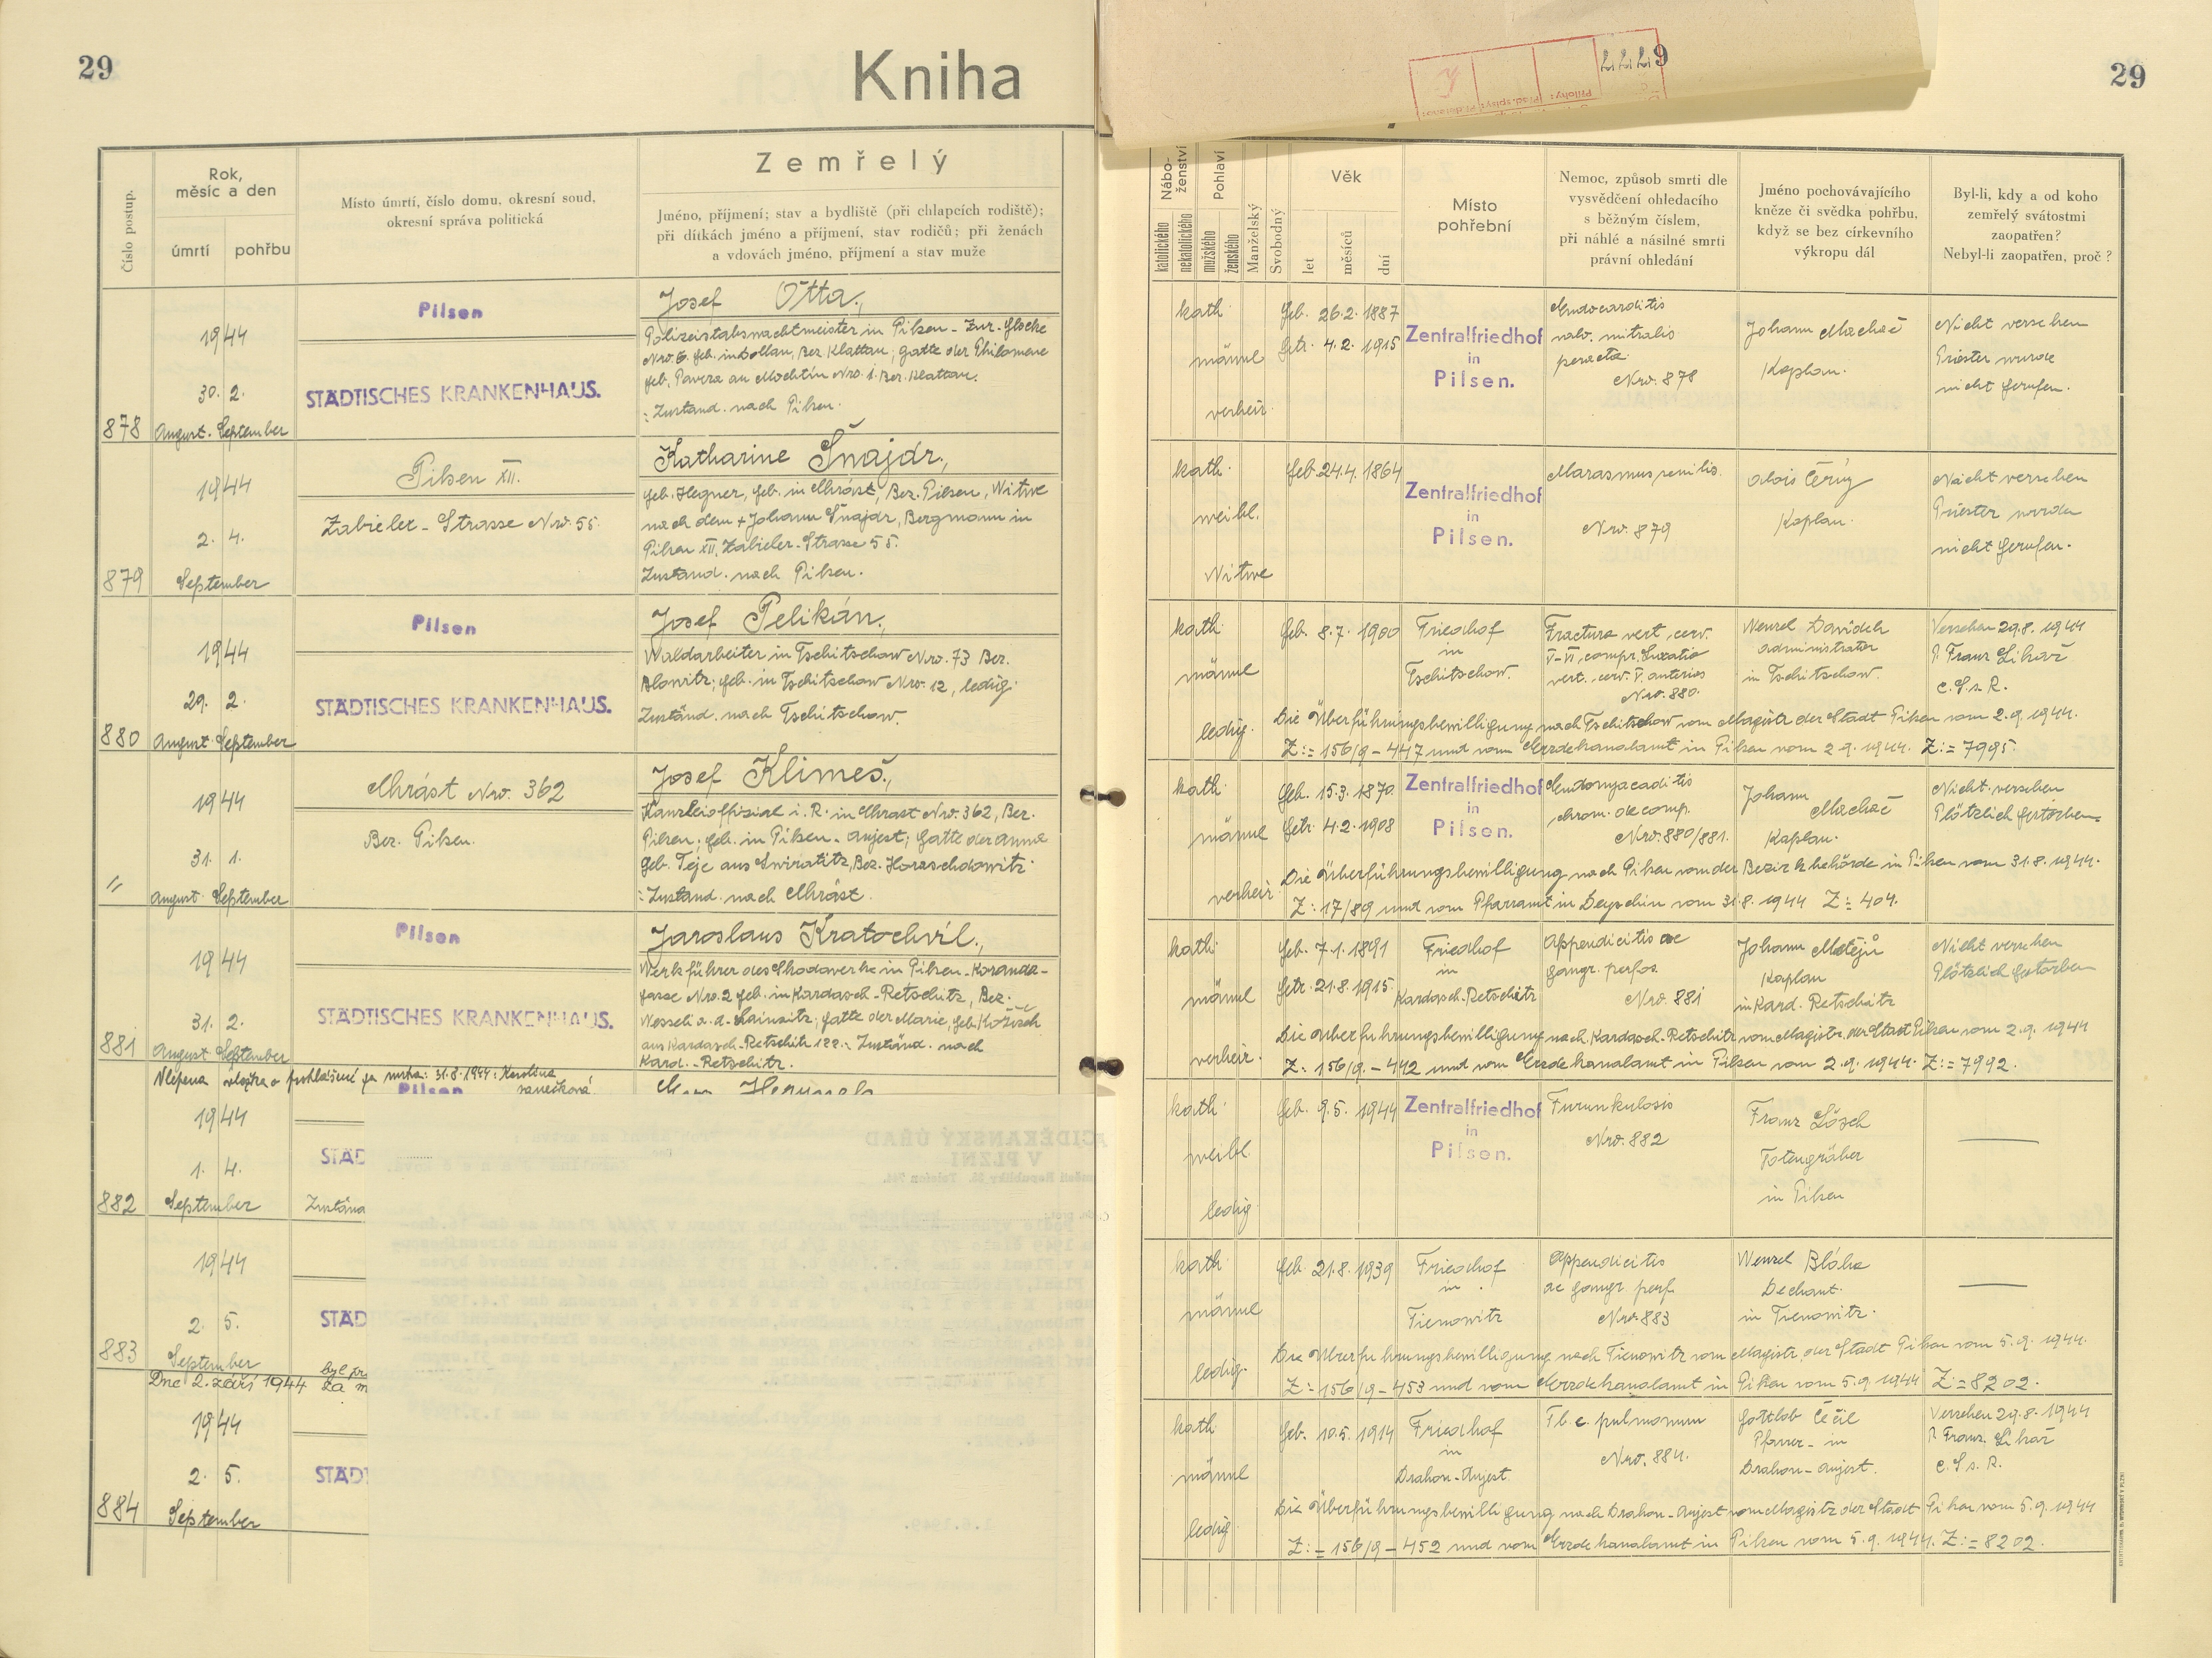 29
Kniha
Číslo postup.
Rok,
měsíc a den
úmrtí
pohřbu
Místo úmrtí, číslo domu, okresní soud,
okresní správa politická
Zemřelý
Jméno, příjmení; stav a bydliště (při chlapcích rodiště);
při dítkách jméno a příjmení, stav rodičů; při ženách
a vdovách jméno, příjmení a stav muže
878
1944
30. 2.
August. September
Pilsen
STÄDTISCHES KRANKENHAUS.
Josef Otta,
Polizeistabswachtmeister in Pilsen - Zur-Glocke
Nro. 6. geb. in Dollan, Bez. Klattau; Gatte der Philomene
geb. Pavera au Mochtin Nro. 1. Bez. Klattau.
: Zuständ. nach Pilsen.
879
1944
2. 4.
September
Pilsen XII.
Zabieler - Strasse Nro. 55.
Katharine Šnajdr,
geb. Hegner, geb. in Chrást, Bez. Pilsen, Witwe
nach dem + Johann Šnajdr, Bergmann in
Pilsen XII. Zabieler-Strasse 55.
Zuständ. nach Pilsen.
880
1944
29. 2.
August September
Pilsen
STÄDTISCHES KRANKENHAUS.
Josef Pelikán,
Waldarbeiter in Tschitschow Nro. 73 Bez.
Blowitz; geb. in Tschitschow Nro. 12, ledig.
Zuständ. nach Tschitschow.
"
1944
31. 1.
August September
Chrást Nro. 362
Bez. Pilsen.
Josef Klimeš,
Kanzleioffizial i. R. in Chrast Nro. 362, Bez.
Pilsen; geb. in Pilsen - Aujest; Gatte der Anna
geb. Teje aus Swiratitz, Bez. Horaschdowitz
: Zuständ. nach Chrást.
881
1944
31. 2.
August September
Pilsen
STÄDTISCHES KRANKENHAUS.
Jaroslaus Kratochvíl,
Werkführer des Skodawerke in Pilsen - Koranda-
gasse Nro. 2 geb. in Kardasch-Retschitz, Bez.
Wesseli a. d. Lainsitz; Gatte der Marie, geb.
aus Kardasch-Retschitz 122.: Zuständ. nach
Kard. - Retschitz.
Vlepena vložka o prohlášení za mrtva: 31.8.1944: Karolina
882
1944
1. 4.
September
Pilsen
STÄD
Zustäna
883
1944
2. 5.
September
STÄD
Dne 2. září 1944 byl pr
za m
884
1944
2. 5.
September
STÄDT
2229
29
Nábo-
ženství
katolického
nekatolického
Pohlaví
mužského
ženského
Manželský
Svobodný
Věk
let
měsíců
dní
Místo
pohřební
Nemoc, způsob smrti dle
vysvědčení ohledacího
s běžným číslem,
při náhlé a násilné smrti
právní ohledání
Jméno pochovávajícího
kněze či svědka pohřbu,
když se bez církevního
výkropu dál
Byl-li, kdy a od koho
zemřelý svátostmi
zaopatřen?
Nebyl-li zaopatřen, proč?
kath.
männl
verheir.
geb. 26.2. 1887
getr. 4.2. 1915
Zentralfriedhof
in
Pilsen.
Endocarditis
valv. mitralis
peracta.
Nro. 878
Johann Machač
Kaplan.
Nicht versehen
Priester wurde
nicht gerufen.
kath.
weibl.
Witwe
geb. 24.4. 1864
Zentralfriedhof
in
Pilsen.
Marasmus senilis.
Nro. 879
Alois Černý
Kaplan.
Nicht versehen
Priester wurde
nicht gerufen.
kath.
männl
ledig.
geb. 8.7. 1900
Friedhof
in
Tschitschow.
Fractura vert. cerv.
V-VI, compr. Luxatio
vert. cerv. V. anterior
Nro. 880.
Wenzel Davidek
Administrator
in Tschitschow.
Versehen 29.8. 1944
P. Franz Likař
C. S. s. R.
Die Überführungsbewilligung nach Tschitschow vom Magistr. der Stadt Pilsen vom 2.9. 1944.
Z:= 156/9 - 447 und vom Erzdekanalamt in Pilsen vom 2.9. 1944. Z:= 7995.
kath.
männl
verheir.
geb. 15.3. 1870
getr. 4.2. 1908
Zentralfriedhof
in
Pilsen.
Endomyocaditis
chron. decomp.
Nro. 880/881.
Johann
Machač
Kaplan.
Nicht versehen
Plötzlich gestorben
Die Überführungsbewilligung nach Pilsen von der Bezirksbehörde in Pilsen vom 31.8. 1944.
Z: 17/89 und vom Pfarramt in Deyschin vom 31.8. 1944 Z:= 404.
kath.
männl
verheir.
geb. 7.1. 1891
getr. 21.8. 1915.
Friedhof
in
Kardasch-Retschitz
Appendicitis ac
gangr. perfor.
Nro. 881
Johann Matějů
Kaplan
in Kard. Retschitz
Nicht versehen
Plötzlich gestorben
Die Überführungsbewilligung nach Kardasch-Retschitz vom Magistr. der Stadt Pilsen vom 2.9. 1944
Z:= 156/9. - 442 und vom Erzdekanalamt in Pilsen vom 2.9. 1944. Z:= 7992.
kath.
weibl.
ledig
geb. 9.5. 1944
Zentralfriedhof
in
Pilsen.
Furunkulosis
Nro. 882
Franz Lösch
Totengräber
in Pilsen
kath.
männl
ledig.
geb. 21.8. 1939
Friedhof
in
Tienowitz
Appendicitis
ac gangr. perf.
Nro. 883
Wenzel Bláha
Dechant.
in Tienowitz.
Die Überführungsbewilligung nach Tienowitz vom Magistr. der Stadt Pilsen vom 5.9. 1944.
Z:= 156/9 - 453 und vom Erzdekanalamt in Pilsen vom 5.9. 1944 Z:= 8202.
kath.
männl
ledig
geb. 10.5. 1914
Friedhof
in
Drahon-Aujest
Tbc. pulmonum
Nro. 884.
Gottlob Čečil
Pfarrer - in
Drahon-Aujest.
Versehen 29.8. 1944
P. Franz. Likař
C. S. s. R.
Die Überführungsbewilligung nach Drahon-Aujest vom Magistr. der Stadt Pilsen vom 5.9. 1944
Z:= 156/9 - 452 und vom Erzdekanalamt in Pilsen vom 5.9. 1944. Z:= 8202.